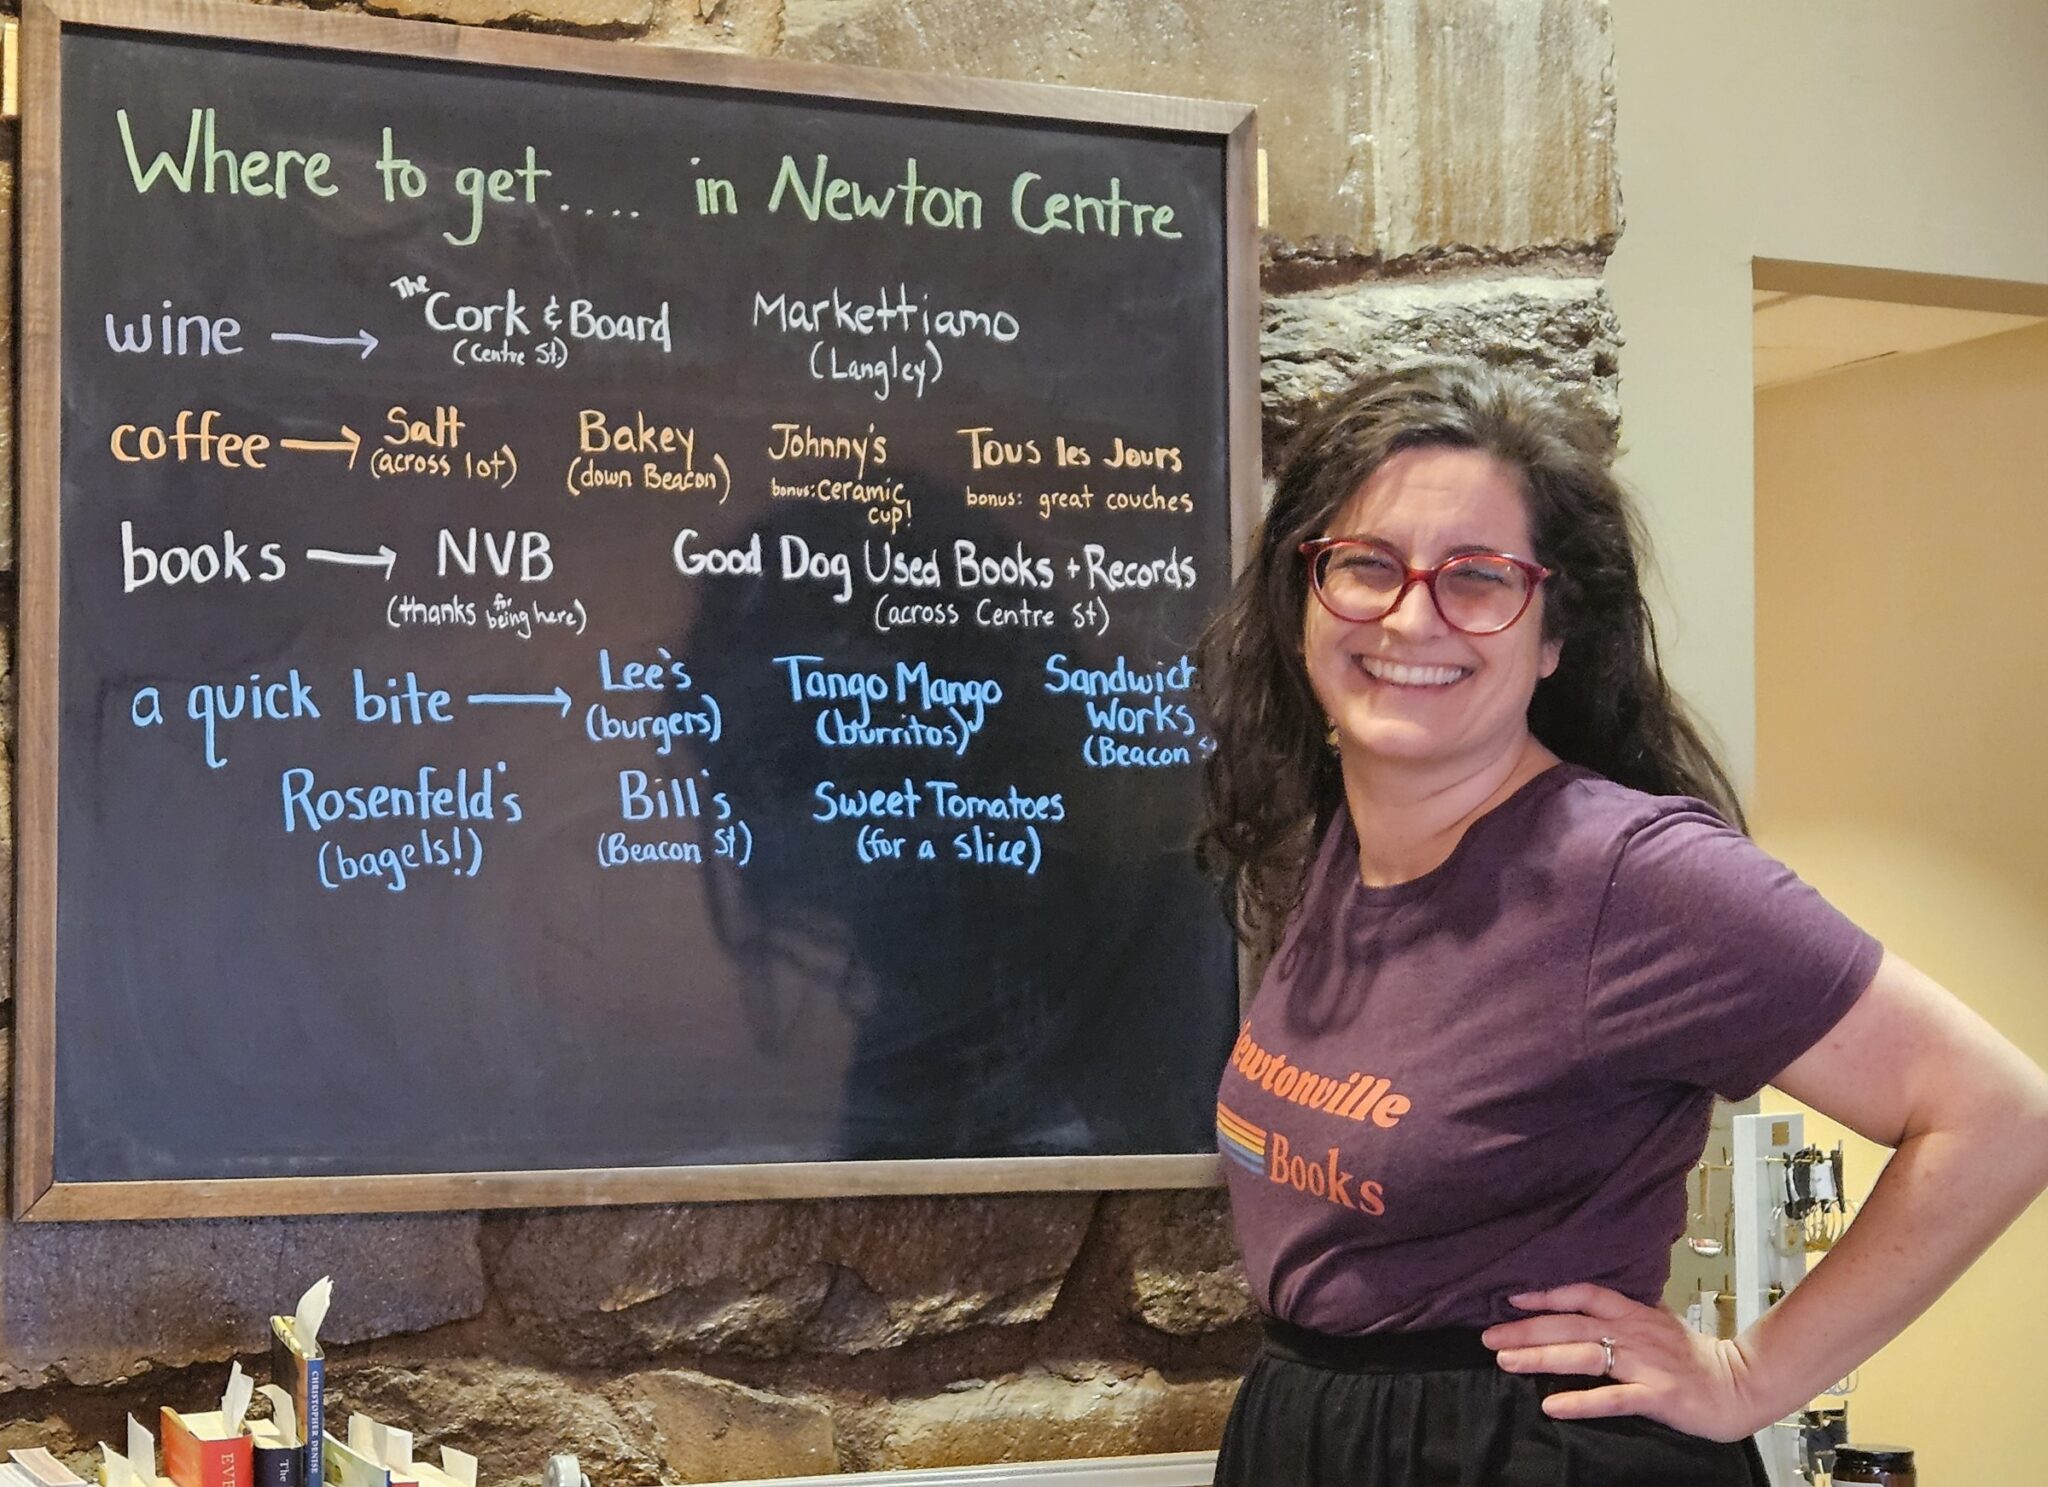 Where to get.... in Newton Centre
wine → The Cork & Board Markettiamo
(Centre St.) (Langley)
coffee → Salt Bakey Johnny's Tous les Jours
(across lot) (down Beacon) bonus: ceramic cup! bonus: great couches
books → NVB Good Dog Used Books + Records
(thanks for being here) (across Centre St)
a quick bite → Lee's Tango Mango Sandwich
(burgers) (burritos) Works
(Beacon
Rosenfeld's Bill's Sweet Tomatoes
(bagels!) (Beacon St) (for a slice)
Newtonville
Books
CHRISTOPHER DENISE
The